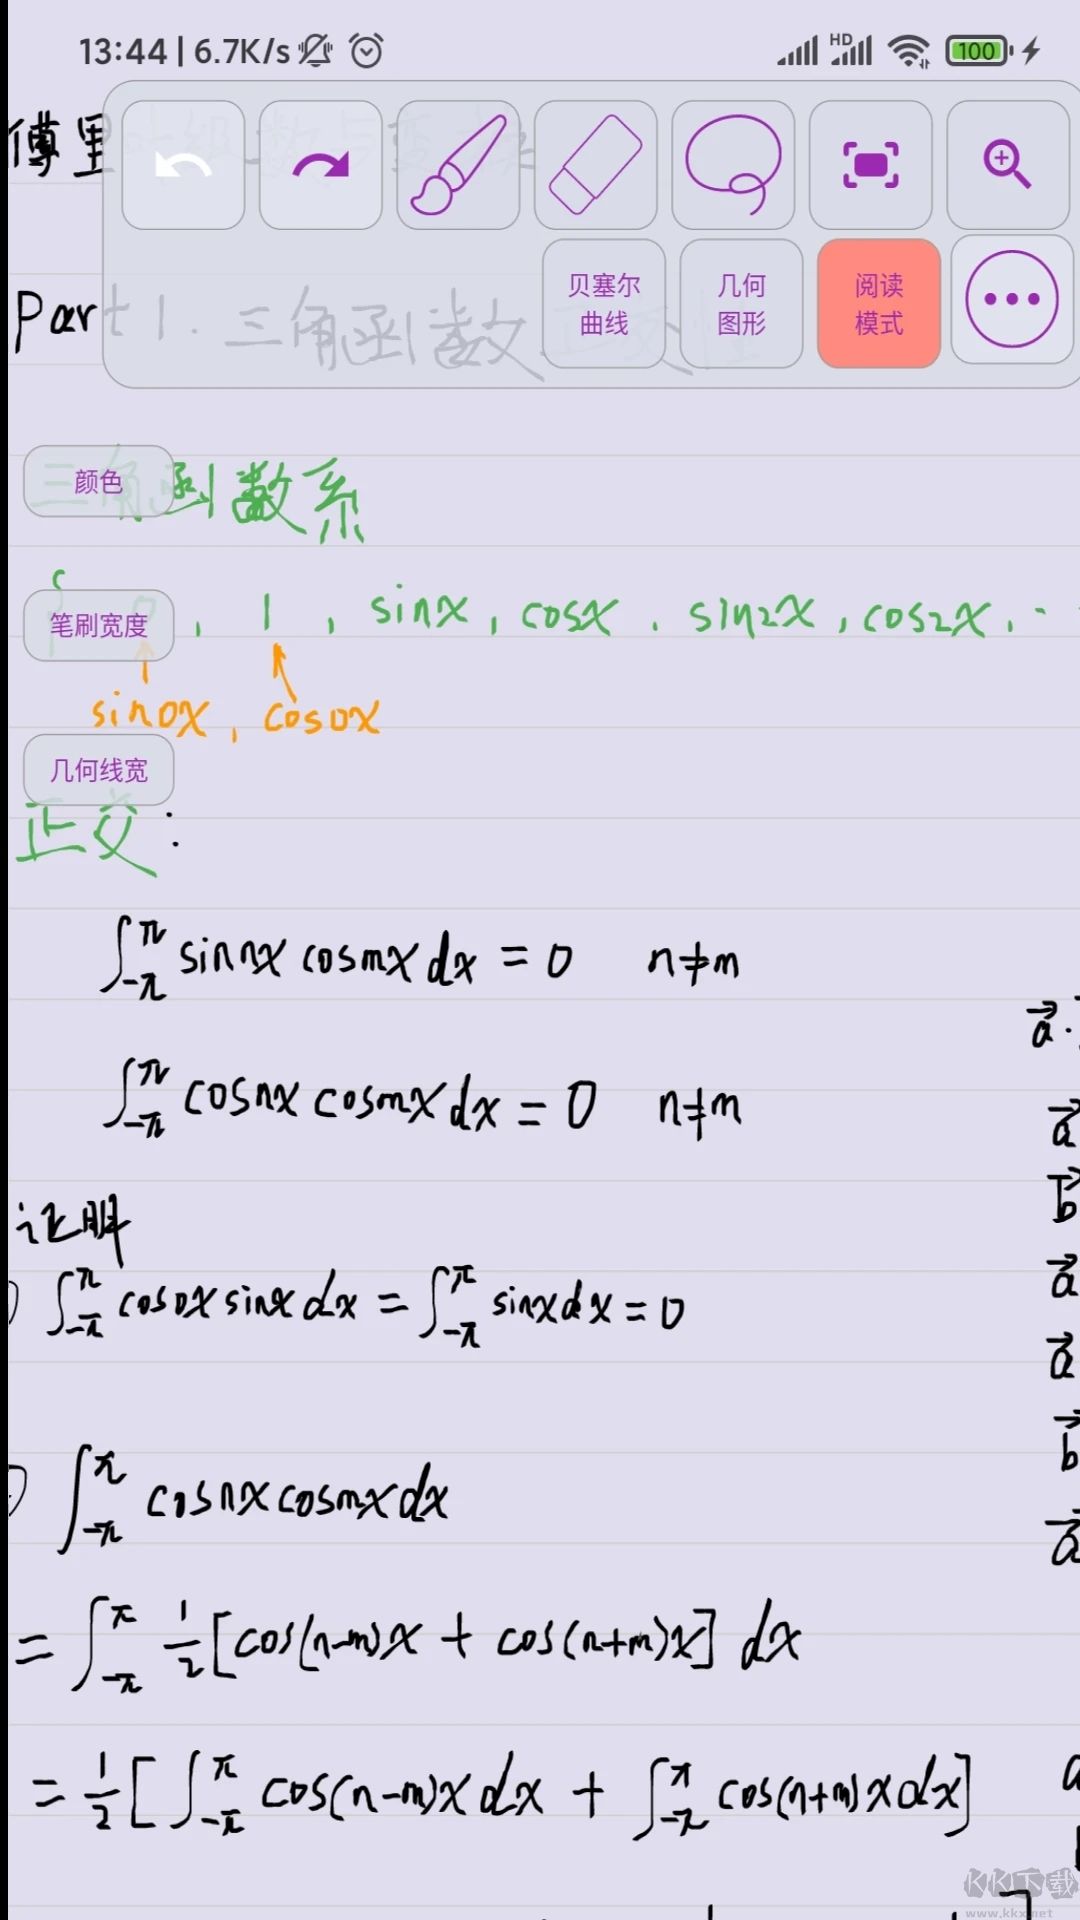 13:44 | 6.7K/s HD 100
傅里叶级数与变换
贝塞尔曲线 几何图形 阅读模式
Part 1. 三角函数正交性
颜色
三角函数系
笔刷宽度
{ 0, 1, sinx, cosx, sin2x, cos2x, ..
sin0x, cos0x
几何线宽
正交:
∫_{-π}^{π} sinnx cosmx dx = 0 n≠m
a⃗ ·
∫_{-π}^{π} cosnx cosmx dx = 0 n≠m
a⃗
b⃗
证明
a⃗
) ∫_{-π}^{π} cos0x sinx dx = ∫_{-π}^{π} sinx dx = 0
a⃗
b⃗
∫_{-π}^{π} cosnx cosmx dx
a⃗
= ∫_{-π}^{π} 1/2 [cos(n-m)x + cos(n+m)x] dx
= 1/2 [∫_{-π}^{π} cos(n-m)x dx + ∫_{-π}^{π} cos(n+m)x dx]
KK下载
www.kkx.net